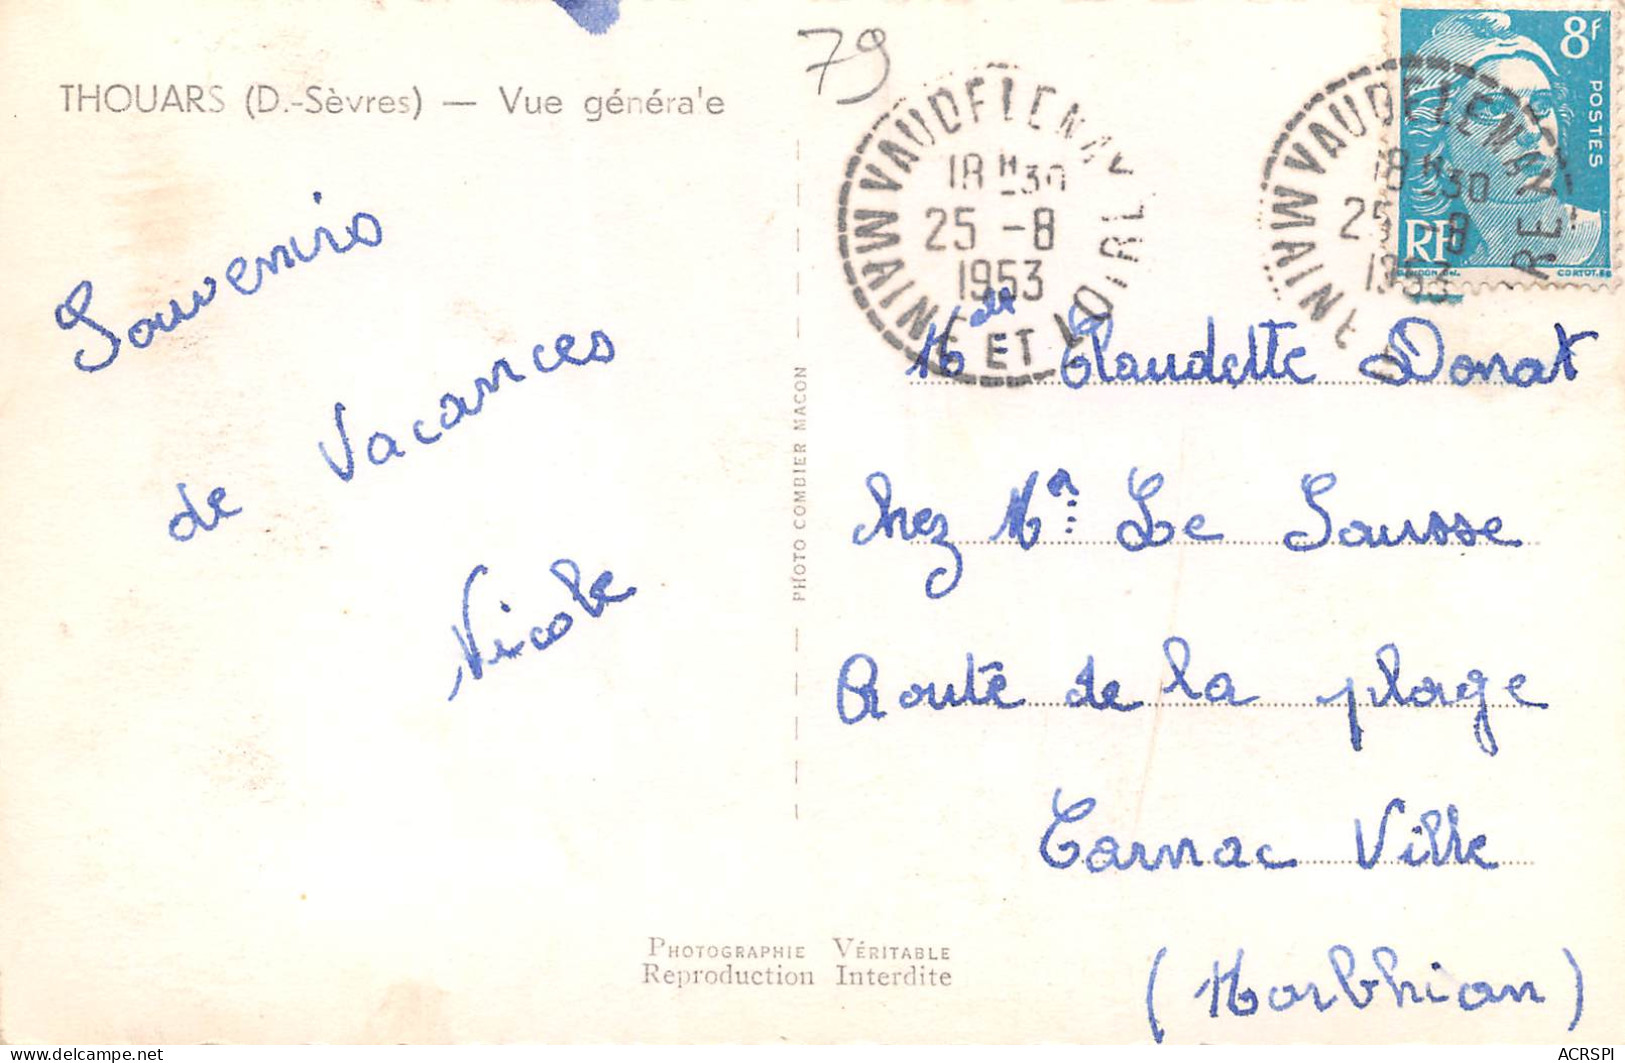 THOUARS (D.-Sèvres) — Vue généra'e
79
VAUDELENAY
18 H 30
25 -8
1953
MAINE ET LOIRE
VAUDELENAY
18 H 30
25 -8
1953
MAINE
8F
POSTES
RF
CORTOT
Souvenirs
de Vacances
Nicole
PHOTO COMBIER MACON
Melle Claudette Donat
chez Mr Le Sousse
Route de la plage
Carnac Ville
(Morbhian)
PHOTOGRAPHIE VÉRITABLE
Reproduction Interdite
ACRSPI